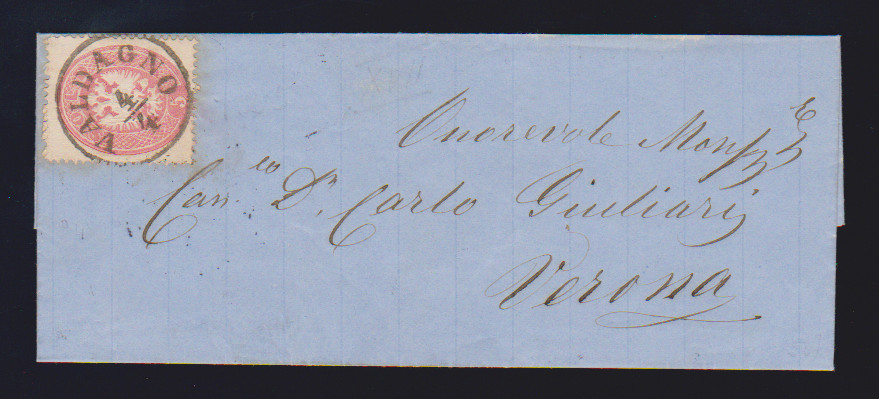 VALDAGNO
4/4
Onorevole Monsr
Can.co Dr. Carlo Giuliari
Verona